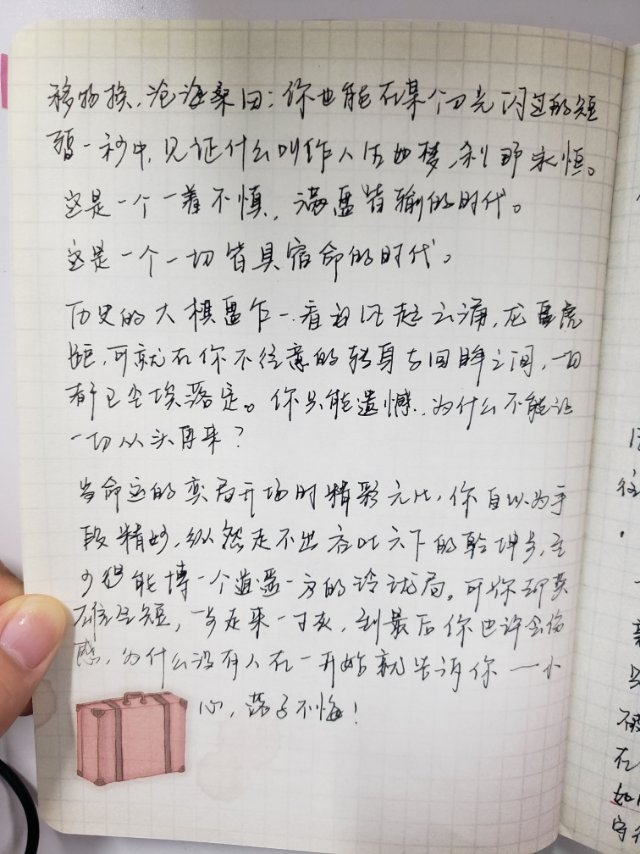 移物换,沧海桑田;你也能在某个刀光闪过的短
暂一秒中,见证什么叫作人生如梦,刹那永恒。
这是一个一着不慎,满盘皆输的时代。
这是一个一切皆具宿命的时代。
历史的大棋盘乍一看风起云涌,龙盘虎
踞,可就在你不经意的转身与回眸之间,一切
都已尘埃落定。你只能遗憾,为什么不能让
一切从头再来?
当命运的变局开场时精彩无比,你自以为手
段精妙,纵然走不出吞吐天下的乾坤步,至
少得能博一个逍遥一方的玲珑局。可你
短,一步走来一寸灰,到最后你也许会伤
感,为什么没有人在一开始就告诉你——小
心,落子不悔!
往
.
一
在
如